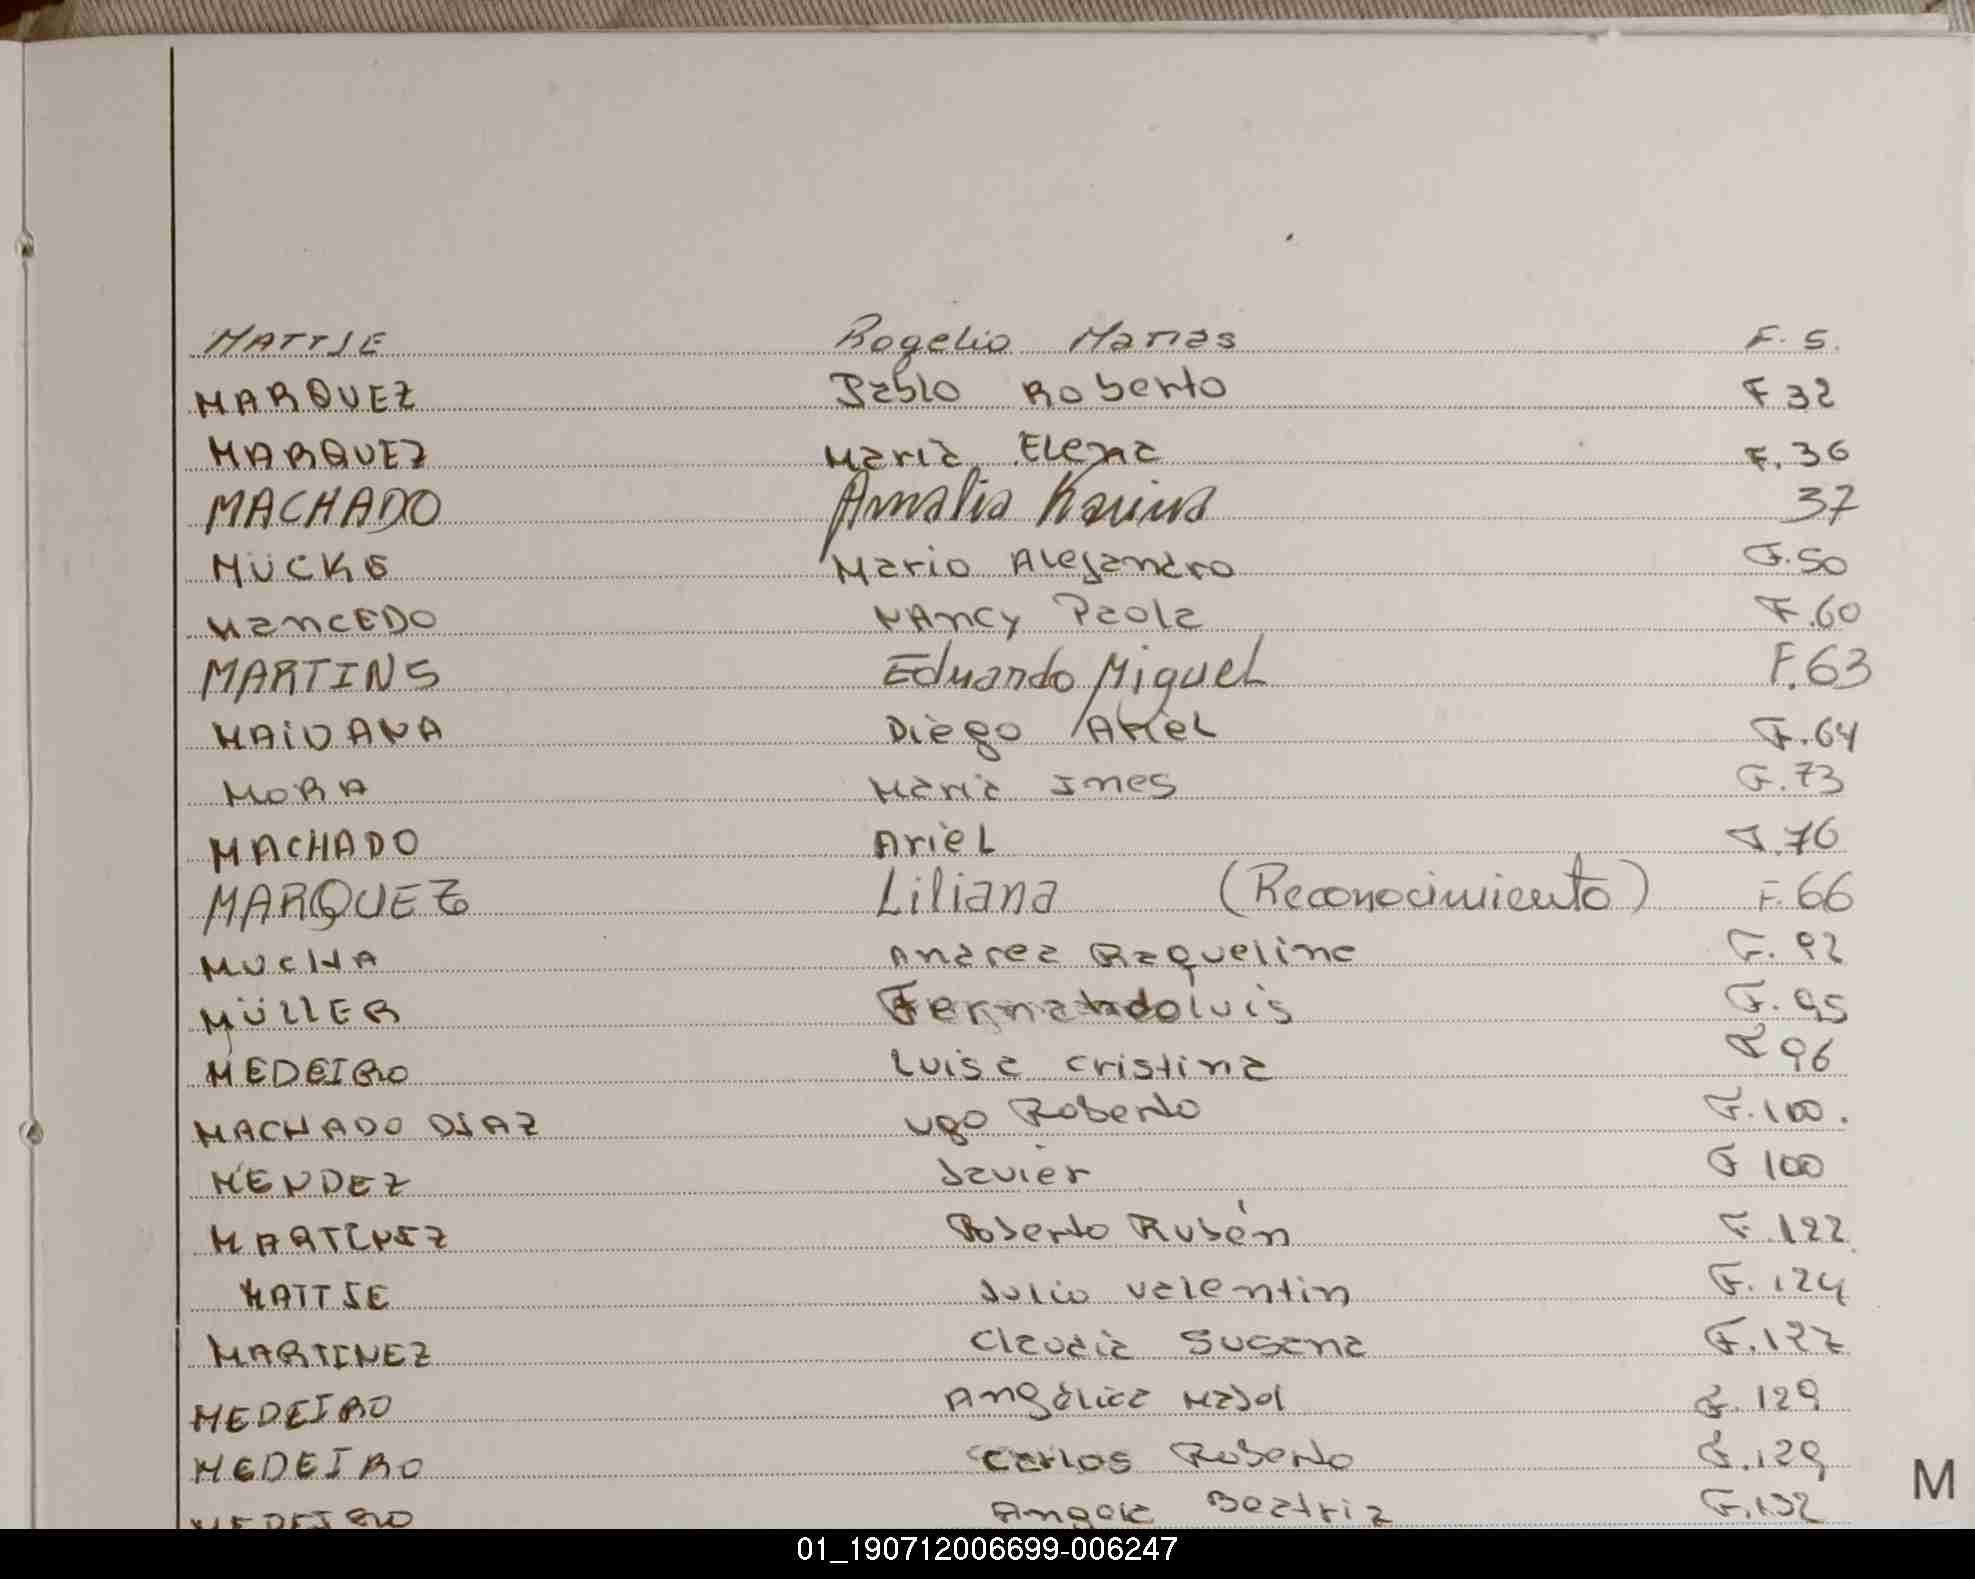 MATTJE Rogelio Matias F. 5.
MARQUEZ Pablo Roberto F 32
MARQUEZ Maria Elena F. 36
MACHADO Amalia Karina 37
MÜCKE Mario Alejandro F. 50
MancEDO NAncy Paola F. 60
MARTINS Eduardo Miguel F. 63
MAiDANA Diego Ariel F. 64
MORA Maria Ines F. 73
MACHADO Ariel F. 76
MARQUEZ Liliana (Reconocimiento) F. 66
MUCHA Andrea Raqueline F. 92
MÜLLER Fernando luis F. 95
MEDEIRO Luisa cristina F 96
MACHADO DIAZ Ugo Roberto F. 100.
MENDEZ Javier F 100
MARTINEZ Roberto Rubén F. 122
MATTJE Julio Valentin F. 124
MARTINEZ Claudia Susana F. 127
MEDEIRO Angélica F. 129
MEDEIRO Carlos Roberto F. 129
MEDEIRO Beatriz F. 132
M
01_190712006699-006247